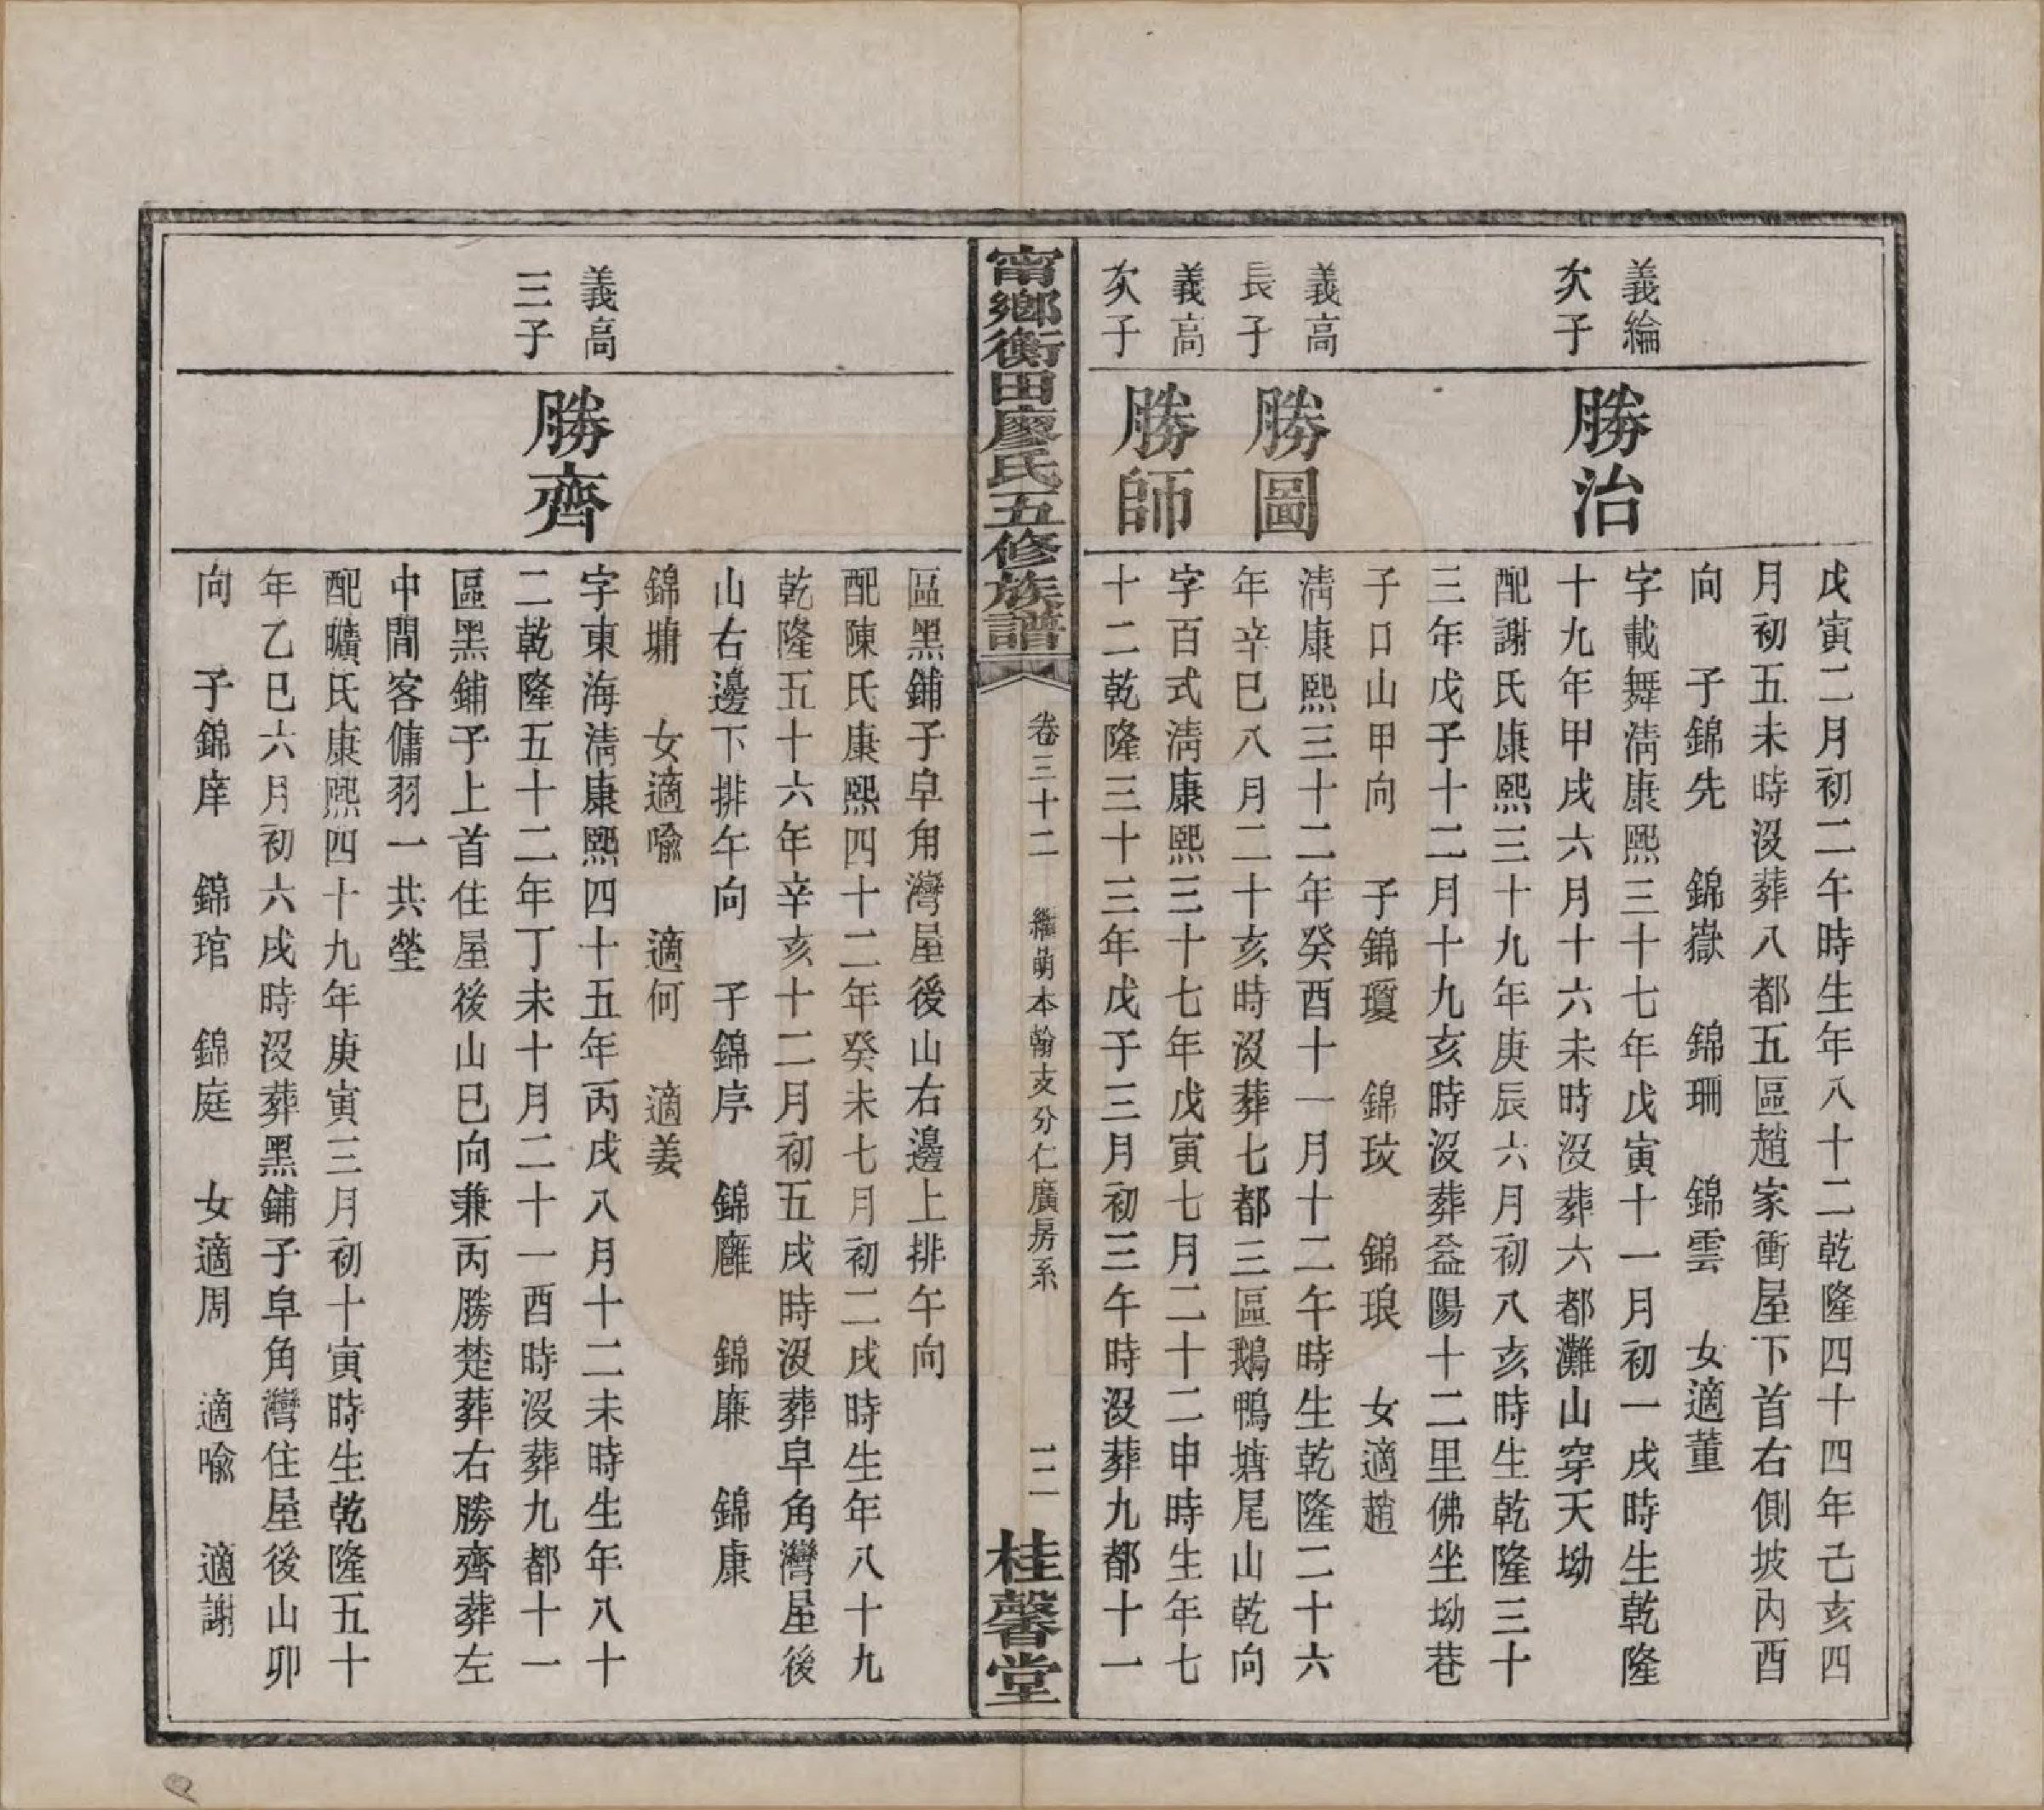 戊寅二月初二午時生年八十二乾隆四十四年己亥四
月初五未時沒葬八都五區趙家衝屋下首右側坡內酉
向　子錦先　錦嶽　錦珊　錦雲　女適董
義綸
次子
勝治
字載舞淸康熙三十七年戊寅十一月初一戌時生乾隆
十九年甲戌六月十六未時沒葬六都灘山穿天坳
配謝氏康熙三十九年庚辰六月初八亥時生乾隆三十
三年戊子十二月十九亥時沒葬益陽十二里佛坐坳巷
子口山甲向　子錦瓊　錦玟　錦琅　女適趙
義高
長子
勝圖
淸康熙三十二年癸酉十一月十二午時生乾隆二十六
年辛巳八月二十亥時沒葬七都三區鵝鴨塘尾山乾向
義高
次子
勝師
字百式淸康熙三十七年戊寅七月二十二申時生年七
十二乾隆三十三年戊子三月初三午時沒葬九都十一
甯鄉衡田廖氏五修族譜
卷三十二　繼萌本翰支分仁廣房系
二二
桂馨堂
區黑鋪子皁角灣屋後山右邊上排午向
配陳氏康熙四十二年癸未七月初二戌時生年八十九
乾隆五十六年辛亥十二月初五戌時沒葬皁角灣屋後
山右邊下排午向　子錦序　錦廱　錦廉　錦康
錦墉　女適喻　適何　適姜
義高
三子
勝齊
字東海淸康熙四十五年丙戌八月十二未時生年八十
二乾隆五十二年丁未十月二十一酉時沒葬九都十一
區黑鋪子上首住屋後山巳向兼丙勝楚葬右勝齊葬左
中間客傭羽一共塋
配曠氏康熙四十九年庚寅三月初十寅時生乾隆五十
年乙巳六月初六戌時沒葬黑鋪子皁角灣住屋後山卯
向　子錦庠　錦琯　錦庭　女適周　適喻　適謝